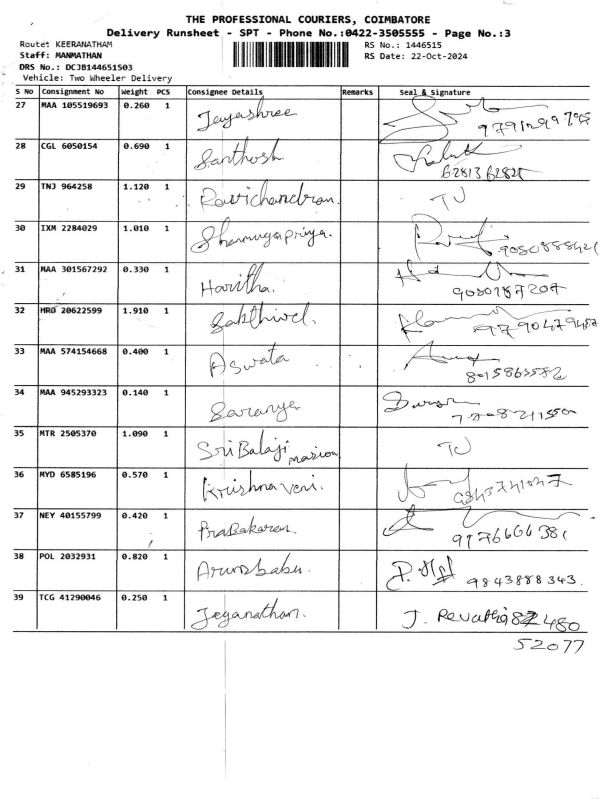 THE PROFESSIONAL COURIERS, COIMBATORE
Delivery Runsheet - SPT - Phone No.:0422-3505555 - Page No.:3
Route: KEERANATHAM RS No.: 1446515
Staff: MANMATHAN RS Date: 22-Oct-2024
DRS No.: DCJB144651503
Vehicle: Two Wheeler Delivery
S No Consignment No Weight PCS Consignee Details Remarks Seal & Signature
27 MAA 105519693 0.260 1 Jayashree
28 CGL 6050154 0.690 1 Santhosh
29 TNJ 964258 1.120 1 Ravichandran. TJ
30 IXM 2284029 1.010 1 Shanmugapriya.
31 MAA 301567292 0.330 1 Haritha.
9080187207
32 HRD 20622599 1.910 1 Sakthivel.
9790479487
33 MAA 574154668 0.400 1 Aswata
34 MAA 945293323 0.140 1 Saranya
35 MTR 2505370 1.090 1 Sri Balaji TJ
36 MYD 6585196 0.570 1 Krishnaveni.
37 NEY 40155799 0.420 1 Prabakaran
9176606381
38 POL 2032931 0.820 1 Arunbabu.
9843888343.
39 TCG 41290046 0.250 1 Jeganathan. J. Revathi 82480
52077